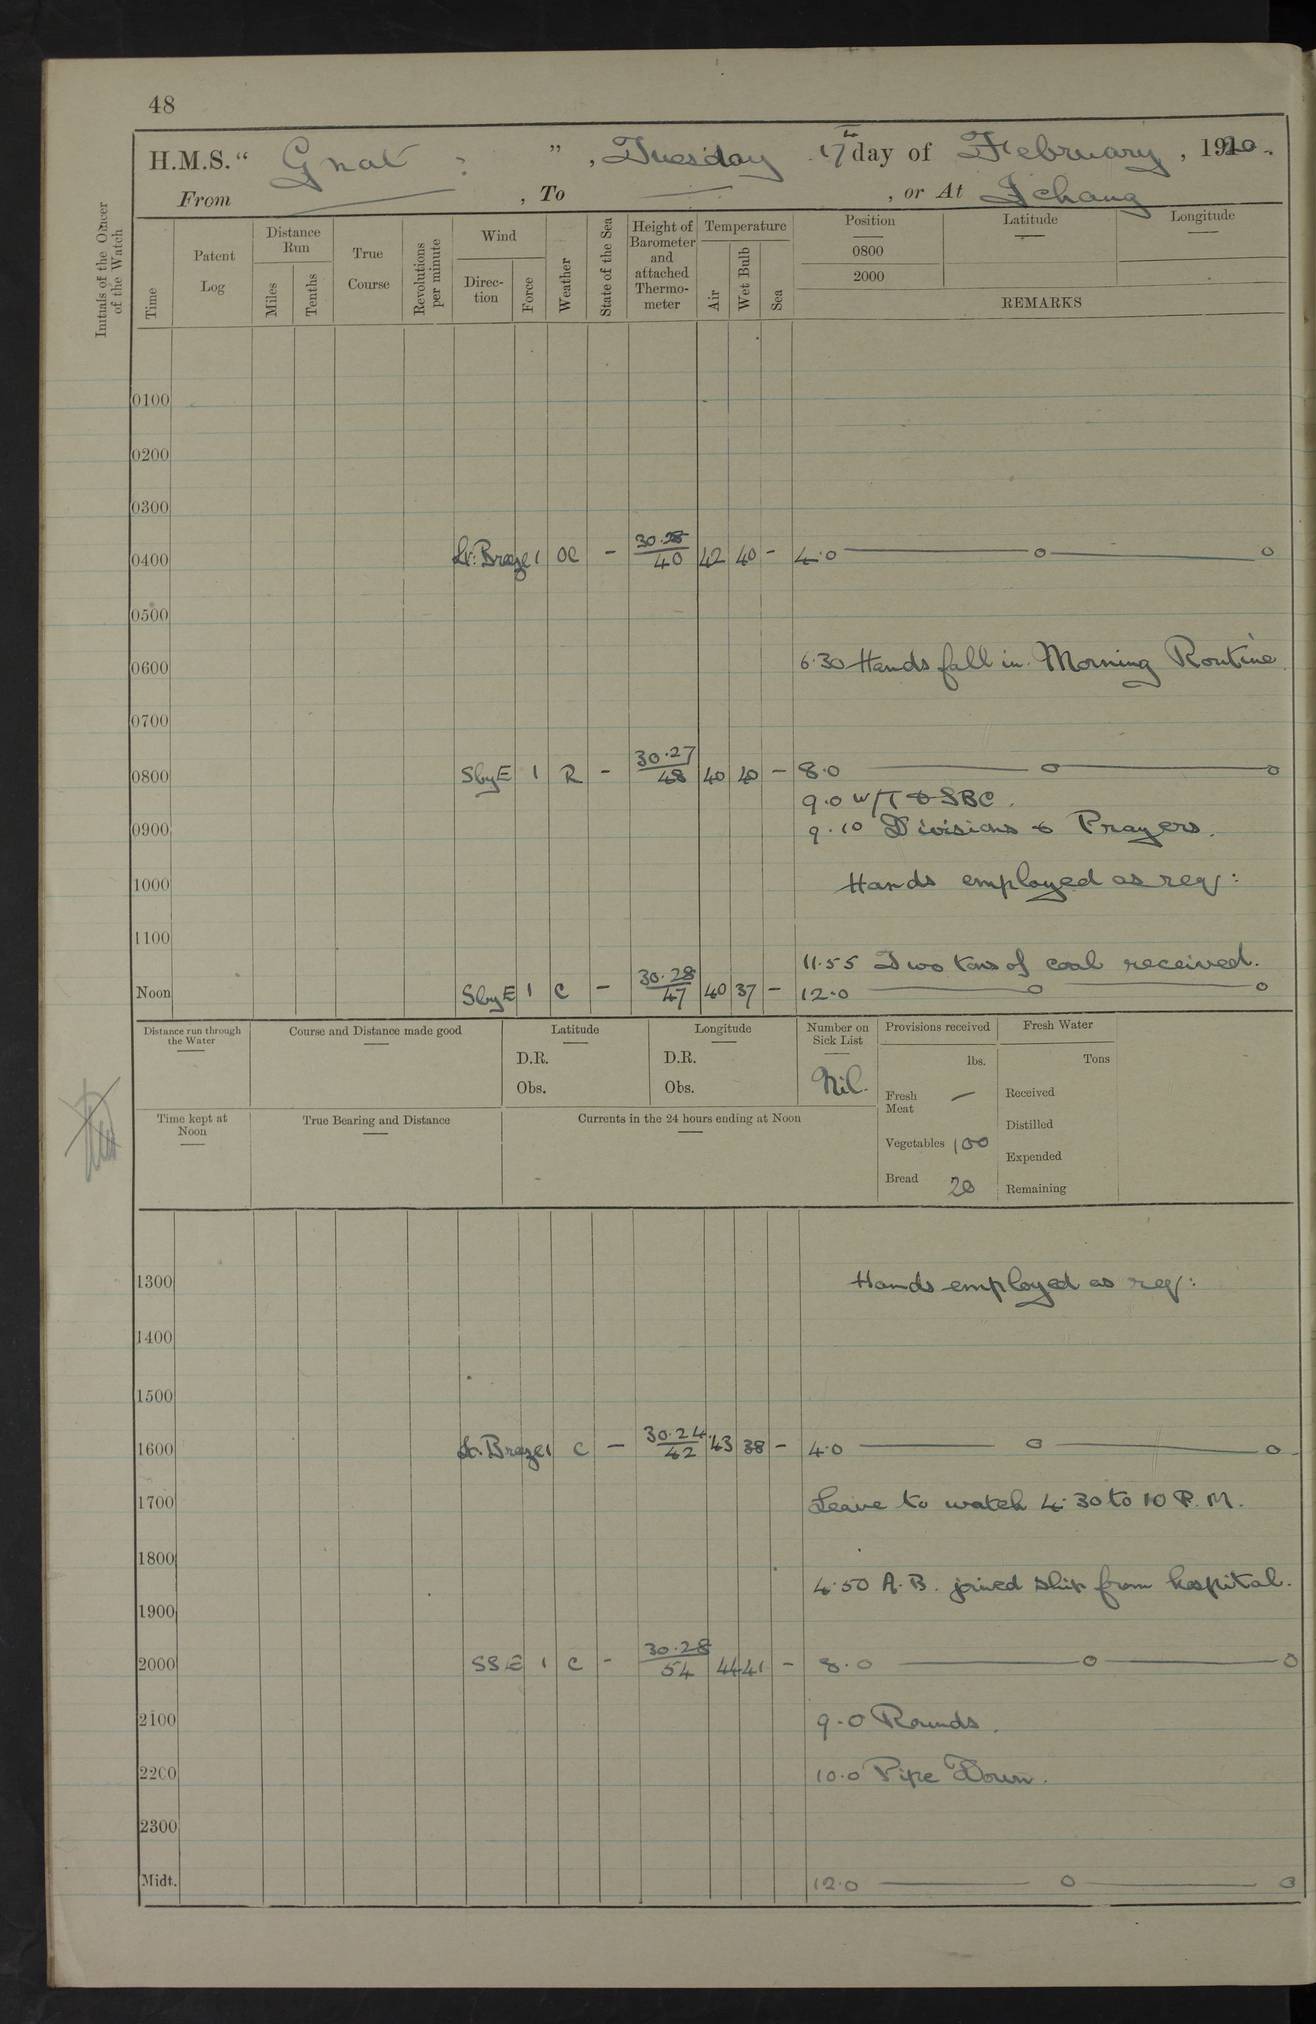 48
H.M.S. “ Gnat : ” , Tuesday 17th day of February , 1920.
From , To , or At Ichang
Initials of the Officer of the Watch
Time
Patent Log
Distance Run
Miles
Tenths
True Course
Revolutions per minute
Wind
Direc-tion
Force
Weather
State of the Sea
Height of Barometer and attached Thermo-meter
Temperature
Air
Wet Bulb
Sea
Position
0800
2000
Latitude
Longitude
REMARKS
0100
0200
0300
0400 Lt. Breeze 1 OC – 30.28/40 42 40 – 4.0 — o — o
0500
0600 6.30 Hands fall in. Morning Routine.
0700
0800 SbyE 1 R – 30.27/48 40 40 – 8.0 — o — o
9.0 W/T & SBC.
0900 9.10 Divisions & Prayers.
1000 Hands employed as req:
1100
11.55 Two tons of coal received.
Noon SbyE 1 C – 30.28/47 40 37 – 12.0 — o — o
Distance run through the Water
Course and Distance made good
Latitude
D.R.
Obs.
Longitude
D.R.
Obs.
Number on Sick List
Nil.
Provisions received
lbs.
Fresh Meat –
Vegetables 100
Bread 20
Fresh Water
Tons
Received
Distilled
Expended
Remaining
Time kept at Noon
True Bearing and Distance
Currents in the 24 hours ending at Noon
1300 Hands employed as req:
1400
1500
1600 Lt. Breeze 1 C – 30.24/42 43 38 – 4.0 — o — o
1700 Leave to watch 4.30 to 10 P.M.
1800
4.50 A.B. joined ship from hospital.
1900
2000 SSE 1 C – 30.28/54 44 41 – 8.0 — o — o
2100 9.0 Rounds.
2200 10.0 Pipe Down.
2300
Midt. 12.0 — o — o